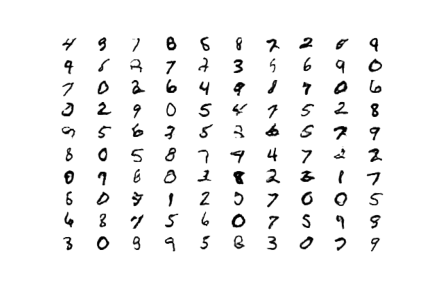 4 9 7 8 6 8 7 2 8 9
9 8 2 7 7 3 9 6 9 0
7 0 2 6 4 9 8 7 0 6
0 2 9 0 5 4 7 5 2 8
9 5 6 3 5 2 6 5 7 9
8 0 5 8 7 9 4 7 2 2
0 9 8 0 2 8 2 3 1 7
6 0 7 1 2 0 7 0 0 5
6 8 7 5 6 0 7 5 9 8
3 0 9 9 5 8 3 0 7 9